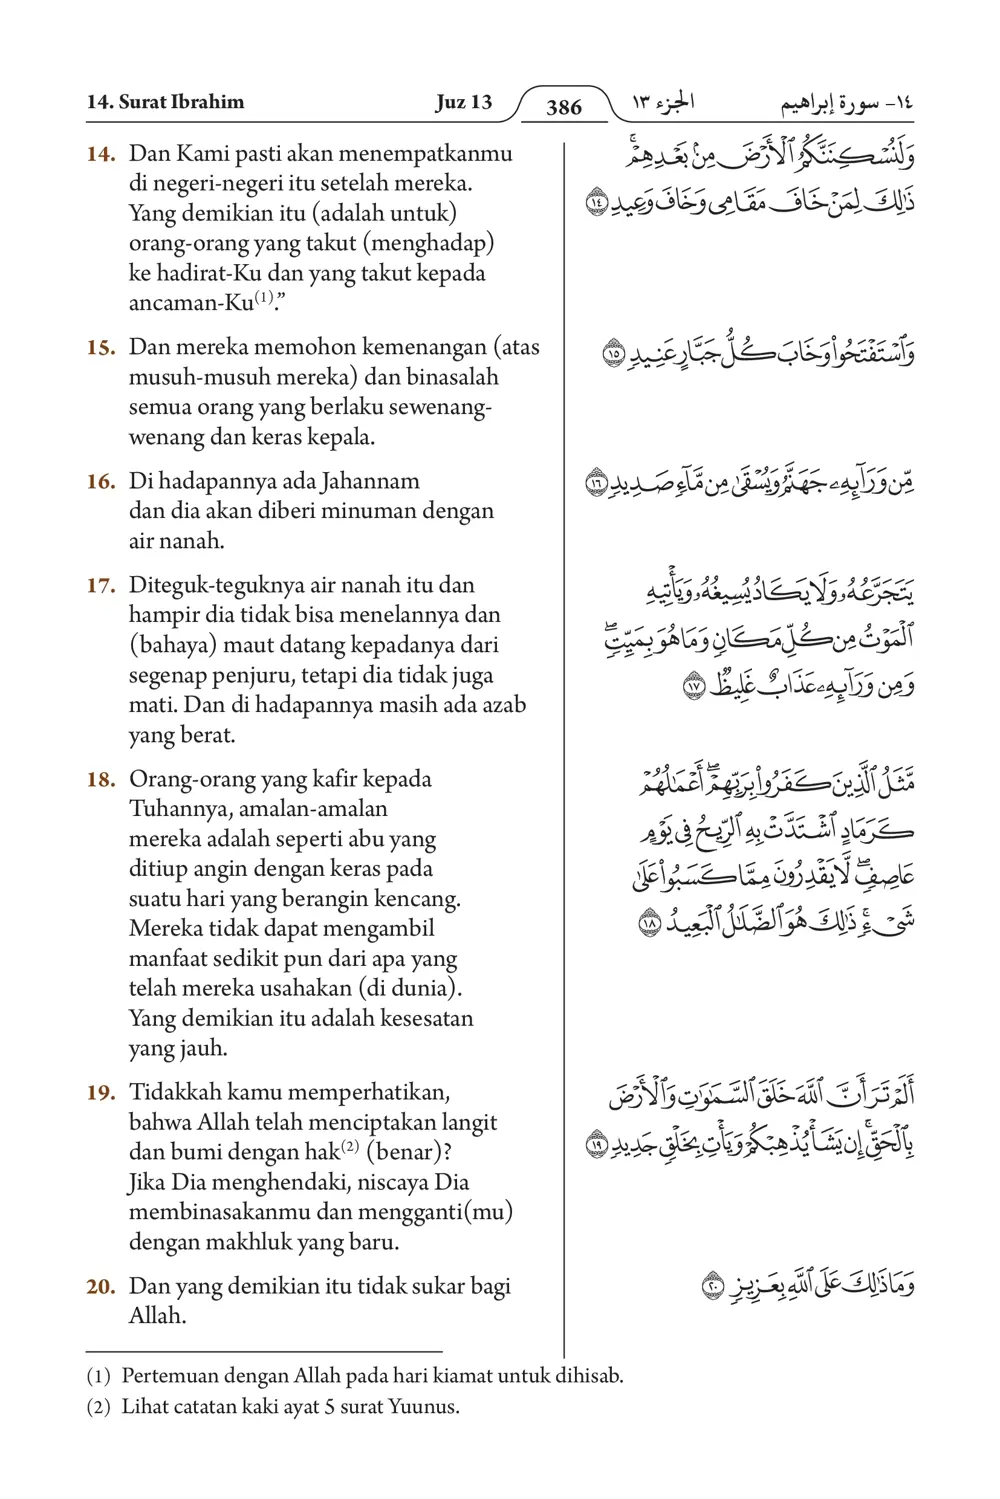 14. Surat Ibrahim Juz 13 386 الجزء ١٣ ١٤- سورة إبراهيم
14. Dan Kami pasti akan menempatkanmu
di negeri-negeri itu setelah mereka.
Yang demikian itu (adalah untuk)
orang-orang yang takut (menghadap)
ke hadirat-Ku dan yang takut kepada
ancaman-Ku(1).”
وَلَنُسْكِنَنَّكُمُ ٱلْأَرْضَ مِنۢ بَعْدِهِمْۚ
ذَٰلِكَ لِمَنْ خَافَ مَقَامِى وَخَافَ وَعِيدِ ١٤
15. Dan mereka memohon kemenangan (atas
musuh-musuh mereka) dan binasalah
semua orang yang berlaku sewenang-
wenang dan keras kepala.
وَٱسْتَفْتَحُوا۟ وَخَابَ كُلُّ جَبَّارٍ عَنِيدٍ ١٥
16. Di hadapannya ada Jahannam
dan dia akan diberi minuman dengan
air nanah.
مِّن وَرَآئِهِۦ جَهَنَّمُ وَيُسْقَىٰ مِن مَّآءٍ صَدِيدٍ ١٦
17. Diteguk-teguknya air nanah itu dan
hampir dia tidak bisa menelannya dan
(bahaya) maut datang kepadanya dari
segenap penjuru, tetapi dia tidak juga
mati. Dan di hadapannya masih ada azab
yang berat.
يَتَجَرَّعُهُۥ وَلَا يَكَادُ يُسِيغُهُۥ وَيَأْتِيهِ
ٱلْمَوْتُ مِن كُلِّ مَكَانٍ وَمَا هُوَ بِمَيِّتٍۖ
وَمِن وَرَآئِهِۦ عَذَابٌ غَلِيظٌ ١٧
18. Orang-orang yang kafir kepada
Tuhannya, amalan-amalan
mereka adalah seperti abu yang
ditiup angin dengan keras pada
suatu hari yang berangin kencang.
Mereka tidak dapat mengambil
manfaat sedikit pun dari apa yang
telah mereka usahakan (di dunia).
Yang demikian itu adalah kesesatan
yang jauh.
مَّثَلُ ٱلَّذِينَ كَفَرُوا۟ بِرَبِّهِمْۖ أَعْمَٰلُهُمْ
كَرَمَادٍ ٱشْتَدَّتْ بِهِ ٱلرِّيحُ فِى يَوْمٍ
عَاصِفٍۖ لَّا يَقْدِرُونَ مِمَّا كَسَبُوا۟ عَلَىٰ
شَىْءٍۚ ذَٰلِكَ هُوَ ٱلضَّلَٰلُ ٱلْبَعِيدُ ١٨
19. Tidakkah kamu memperhatikan,
bahwa Allah telah menciptakan langit
dan bumi dengan hak(2) (benar)?
Jika Dia menghendaki, niscaya Dia
membinasakanmu dan mengganti(mu)
dengan makhluk yang baru.
أَلَمْ تَرَ أَنَّ ٱللَّهَ خَلَقَ ٱلسَّمَٰوَٰتِ وَٱلْأَرْضَ
بِٱلْحَقِّۚ إِن يَشَأْ يُذْهِبْكُمْ وَيَأْتِ بِخَلْقٍ جَدِيدٍ ١٩
20. Dan yang demikian itu tidak sukar bagi
Allah.
وَمَا ذَٰلِكَ عَلَى ٱللَّهِ بِعَزِيزٍ ٢٠
(1) Pertemuan dengan Allah pada hari kiamat untuk dihisab.
(2) Lihat catatan kaki ayat 5 surat Yuunus.